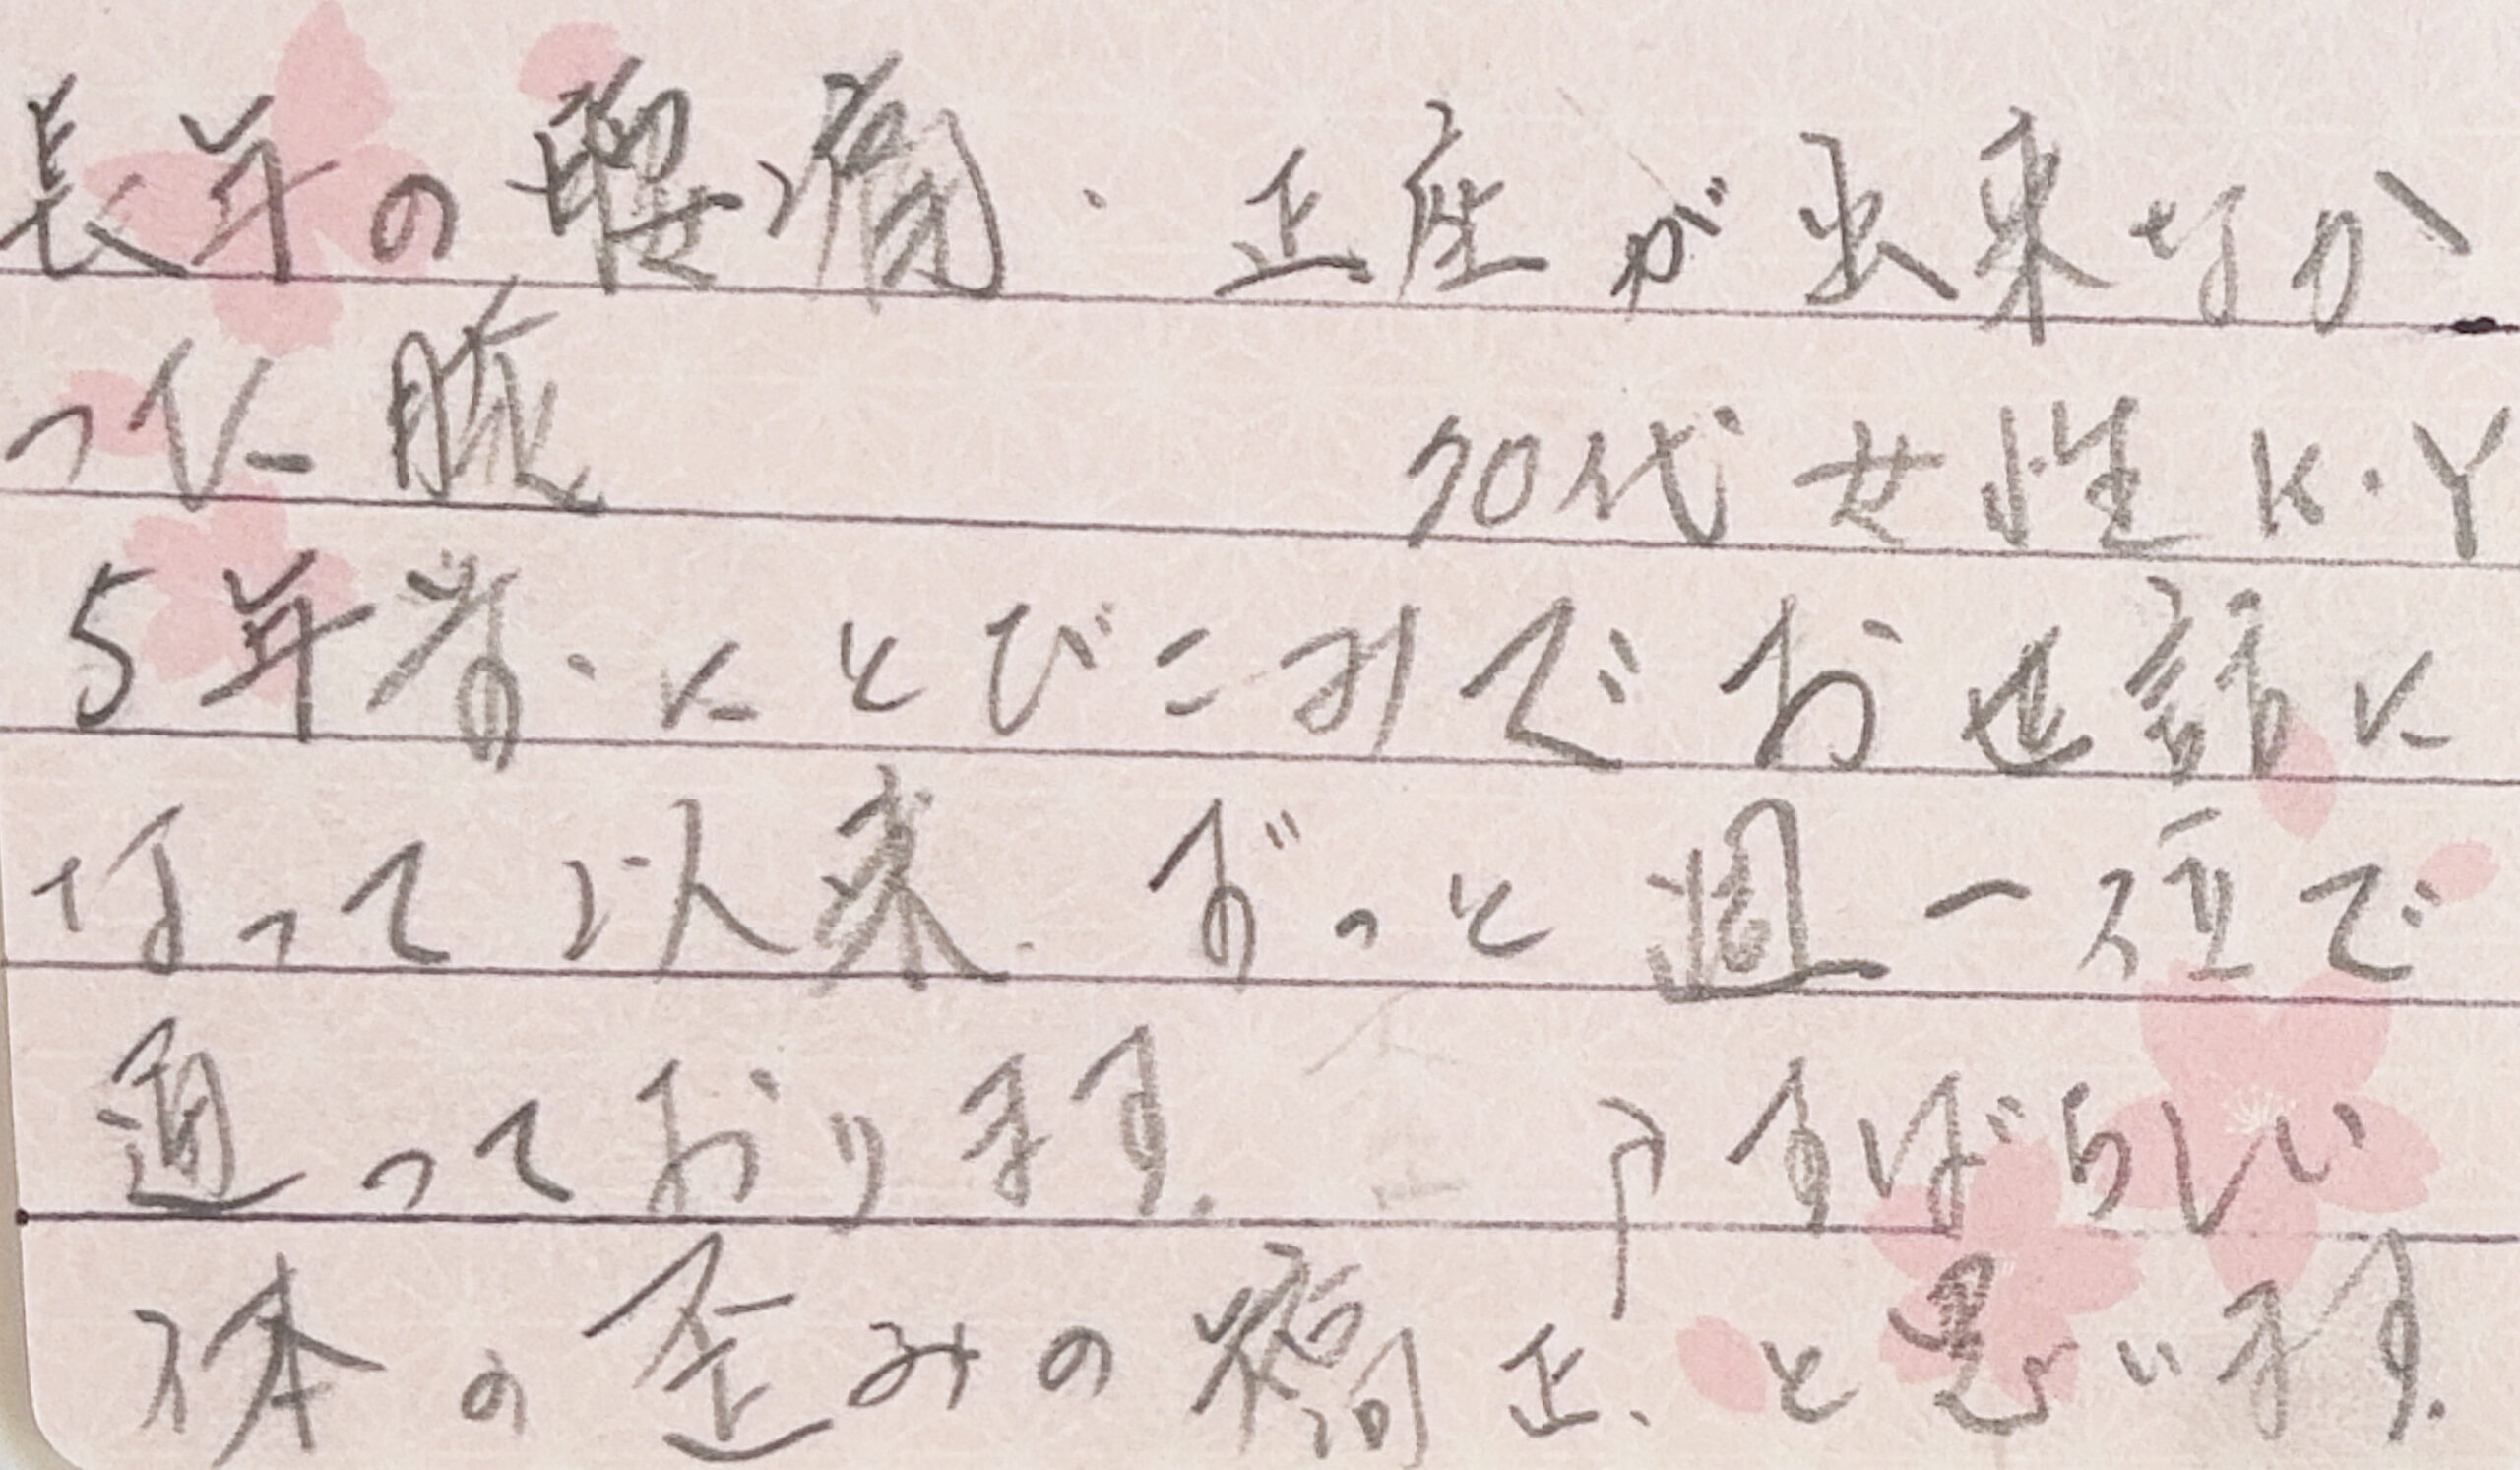 長年の腰痛・正座が出来なか
った膝 70代女性 K・Y
5年前、にとびこみでお世話に
なって以来、ずっと週一位で
通っております。 すばらしい
体の歪みの矯正、と思います。